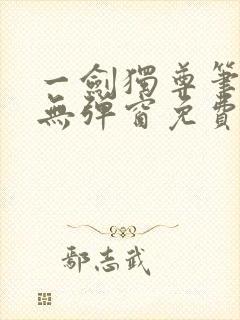 一劍獨尊筆
無彈窗免費
鄢志武